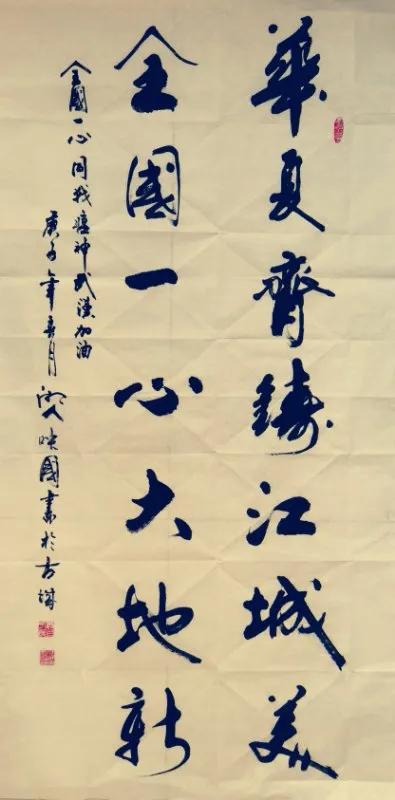 華夏齊鑄江城美
全國一心大地新
全國一心同戰瘟神武漢加油
庚子年春月湘人映國書於古